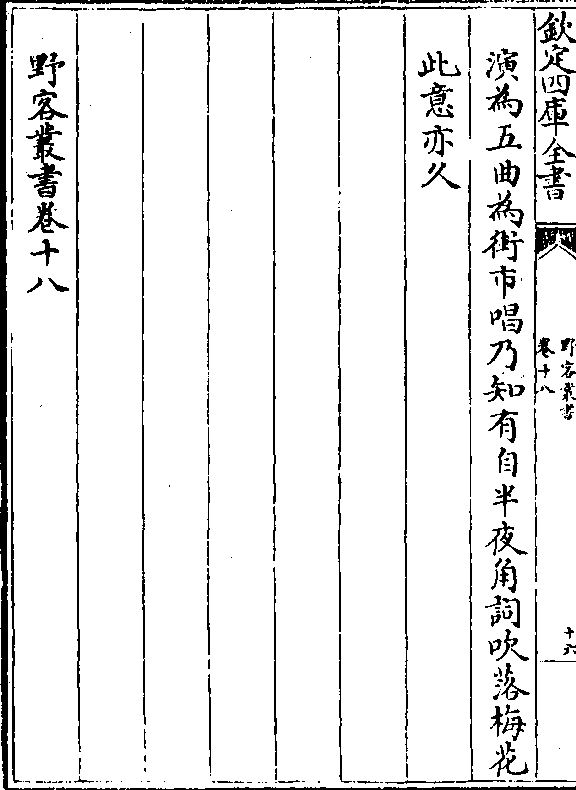 欽定四庫全書
野客叢書
卷十八
十六
演為五曲為街市唱乃知有自半夜角詞吹落梅花
此意亦久
野客叢書卷十八